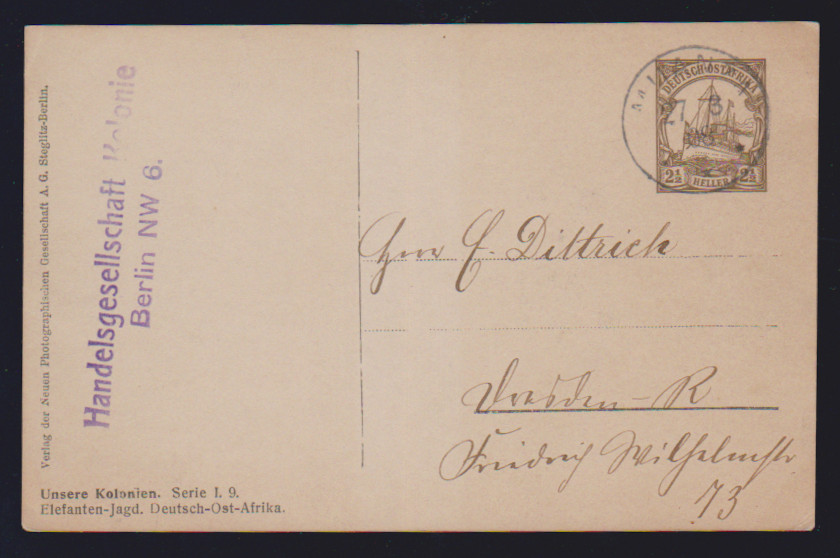 Verlag der Neuen Photographischen Gesellschaft A. G. Steglitz-Berlin.
Handelsgesellschaft Kolonie
Berlin NW 6.
DEUTSCH-OSTAFRIKA
27 3
08
2½ HELLER 2½
Herr E. Dittrich
Dresden-R
Friedrich Wilhelmstr
73
Unsere Kolonien. Serie I. 9.
Elefanten-Jagd. Deutsch-Ost-Afrika.